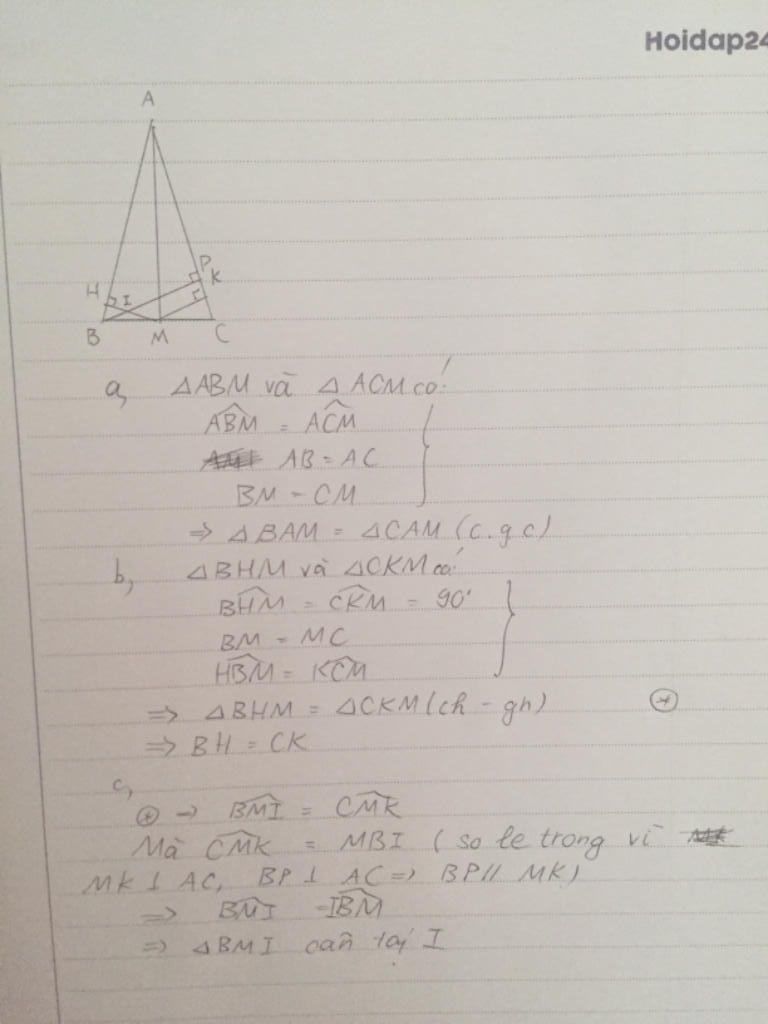 Hoidap24
A
H
I
P
K
B
M
C
a, △ABM và △ACM có:
ABM̂ = ACM̂
AB = AC
BM = CM
=> △BAM = △CAM (c.g c)
b, △BHM và △CKM có:
BHM̂ = CKM̂ = 90°
BM = MC
HBM̂ = KCM̂
=> △BHM = △CKM (ch - gn) (*)
=> BH = CK
c,
(*) -> BMÎ = CMK̂
Mà CMK̂ = MBI ( so le trong vì
MK ⊥ AC, BP ⊥ AC => BP // MK)
=> BMÎ = IBM̂
=> △BMI cân tại I